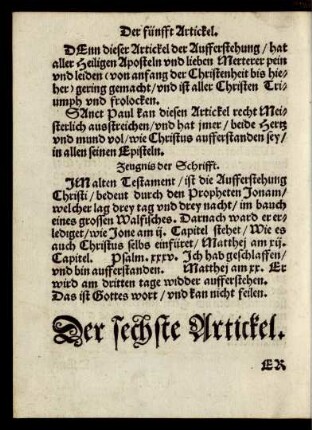 Der fünfft Artickel.
DEnn dieser Artickel der Aufferstehung / hat
aller Heiligen Aposteln vnd lieben Merterer pein
vnd leiden (von anfang der Christenheit bis hie-
her) gering gemacht / vnd ist aller Christen Tri-
umph vnd frolocken.
SAnct Paul kan diesen Artickel recht Mei-
sterlich ausstreichen / vnd hat jmer / beide Hertz
vnd mund vol / wie Christus aufferstanden sey /
in allen seinen Episteln.
Zeugnis der Schrifft.
IM alten Testament / ist die Aufferstehung
Christi / bedeut durch den Propheten Jonam /
welcher lag drey tag vnd drey nacht / im bauch
eines grossen Walfisches. Darnach ward er er-
lediget / wie Jone am ij. Capitel stehet / Wie es
auch Christus selbs einfüret / Matthej am xij.
Capitel. Psalm. xxxv. Ich hab geschlaffen /
vnd bin aufferstanden. Matthej am xx. Er
wird am dritten tage widder aufferstehen.
Das ist Gottes wort / vnd kan nicht feilen.
Der sechste Artickel.
ER